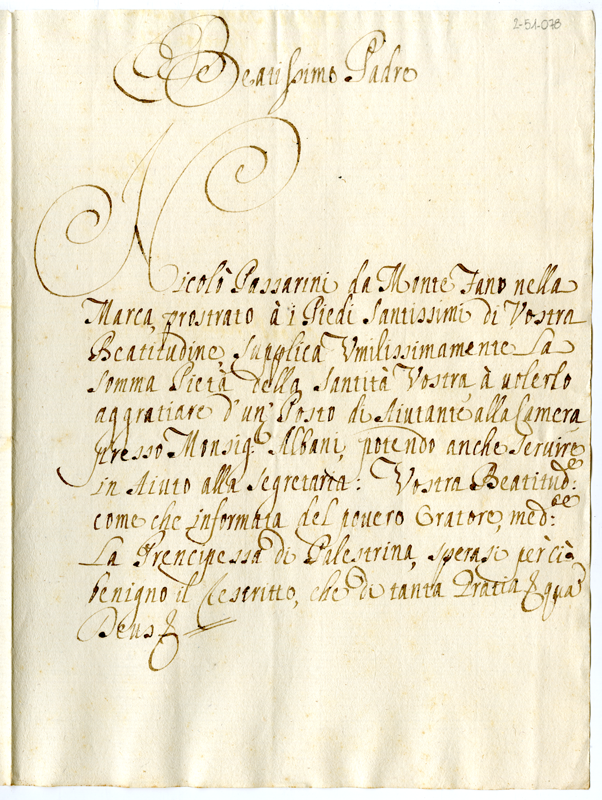 2-51-078
Beatissimo Padre
Nicolò Passarini da Monte Fano nella
Marca, prostrato à i Piedi Santissimi di Vostra
Beatitudine, supplica Vmilissimamente La
somma Pietà della Santità Vostra à volerlo
aggratiare d'un' Posto di Aiutante alla Camera
presso Monsig.r Albani, potendo anche servire
in Aiuto alla segretaria: Vostra Beatitud:e
come che informata del povero Oratore, med:te
La Prencipessa di Palestrina, sperasi perciò
benigno il Rescritto, che di tanta Gratia & qua
Deus &